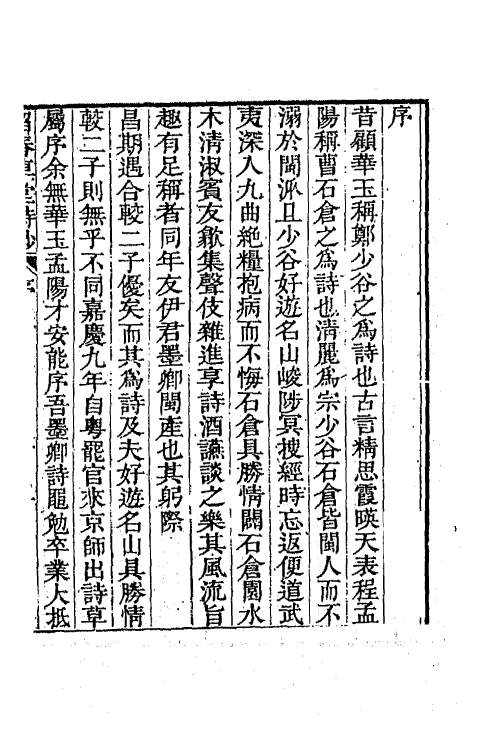 序
昔顧華玉稱鄭少谷之爲詩也古言精思霞暎天表程孟
陽稱曹石倉之爲詩也淸麗爲宗少谷石倉皆閩人而不
溺於閩派且少谷好遊名山峻陟冥搜經時忘返便道武
夷深入九曲絶糧抱病而不悔石倉具勝情闢石倉園水
木淸淑賓友歙集聲伎雜進享詩酒讌談之樂其風流旨
趣有足稱者同年友伊君墨卿閩產也其躬際
昌期遇合較二子優矣而其爲詩及夫好遊名山具勝情
較二子則無乎不同嘉慶九年自粵罷官來京師出詩草
屬序余無華玉孟陽才安能序吾墨卿詩黽勉卒業大抵
留春草堂詩鈔 序